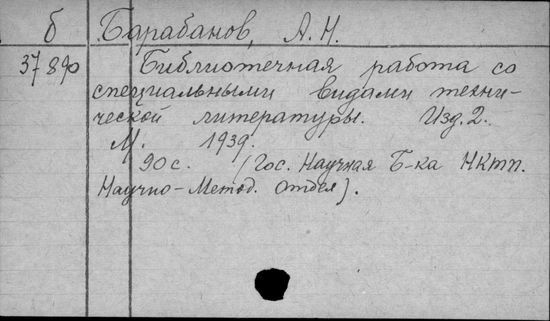 б Барабанов, А.Н.
37890 Библиотечная работа со
специальными видами техни-
ческой литературы. Изд. 2.
М. 1939.
90 с. (Гос. Научная Б-ка НКТП.
Научно-Метод. отдел).